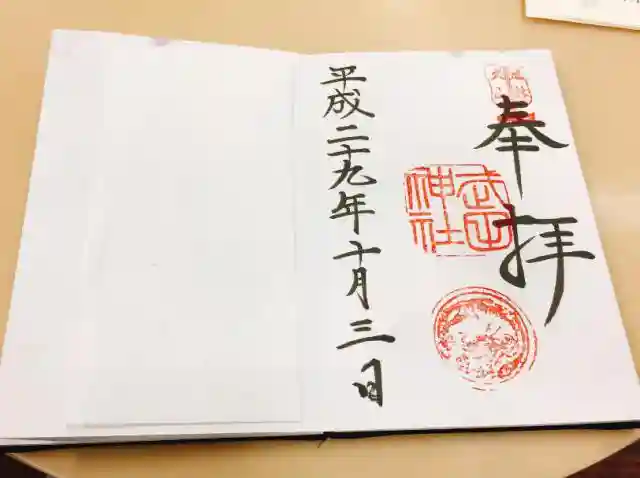 奉拝
武田
神社
平成二十九年十月三日